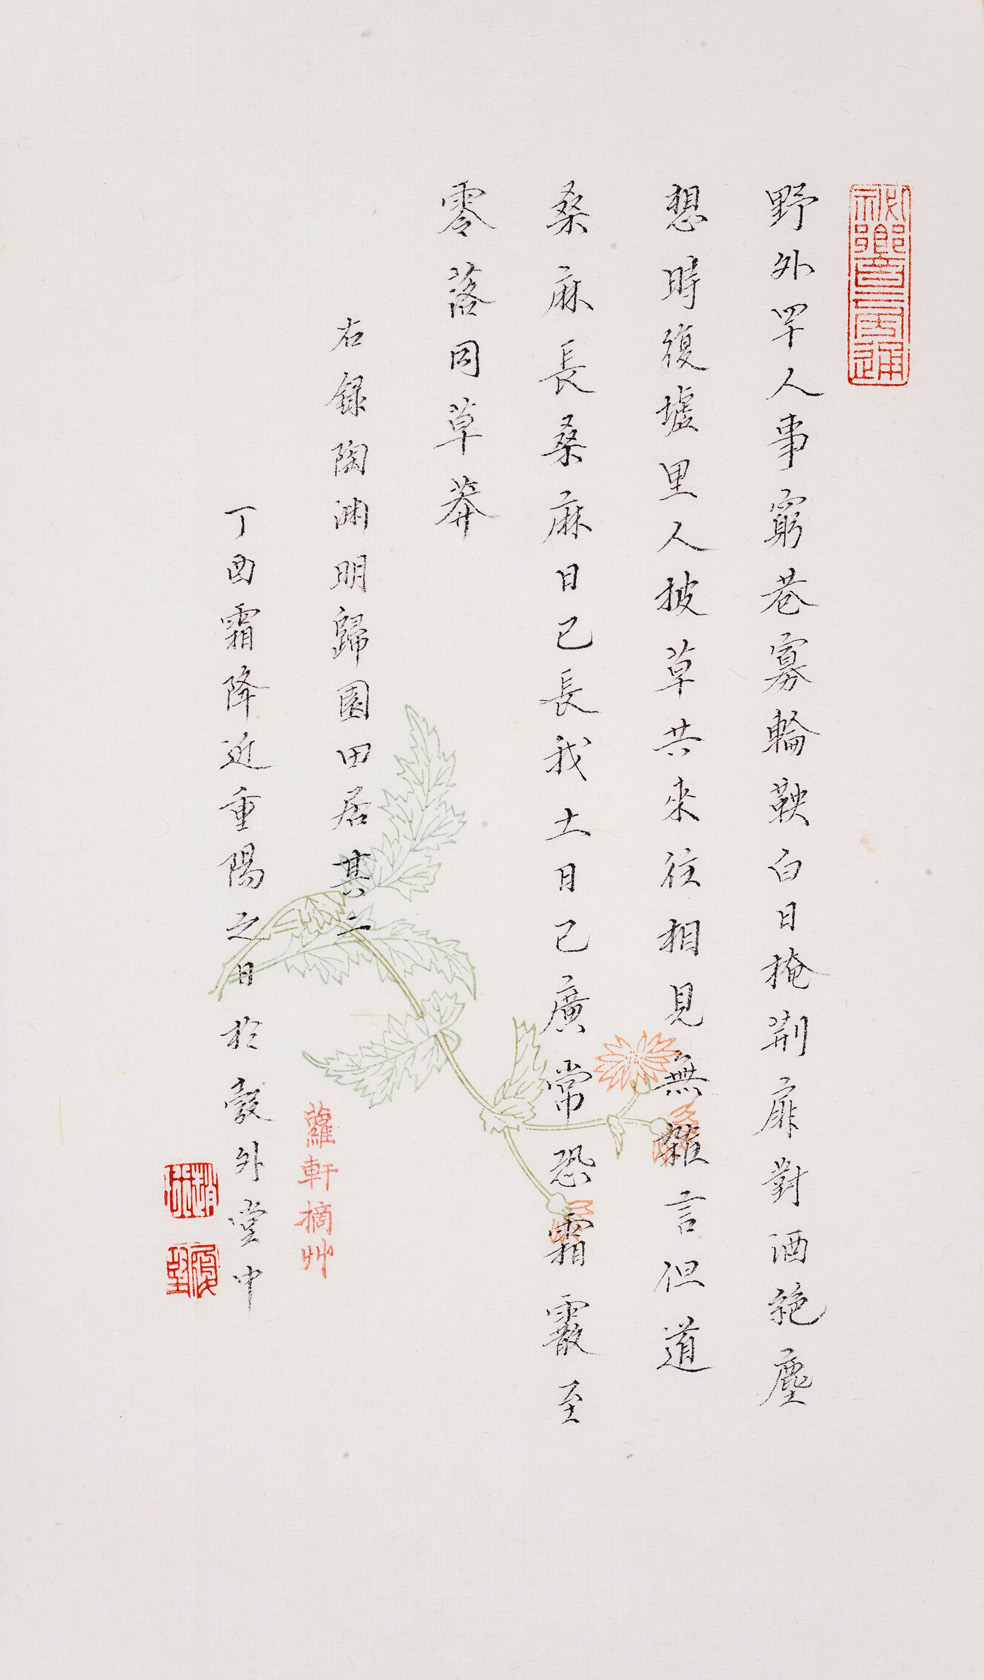 野外罕人事窮巷寡輪鞅白日掩荆扉對酒絶塵
想時復墟里人披草共來往相見無雜言但道
桑麻長桑麻日已長我土日已廣常恐霜霰至
零落同草莽
右録陶渊明歸園田居其二
蘿軒摘艸
丁酉霜降近重陽之日於外堂中